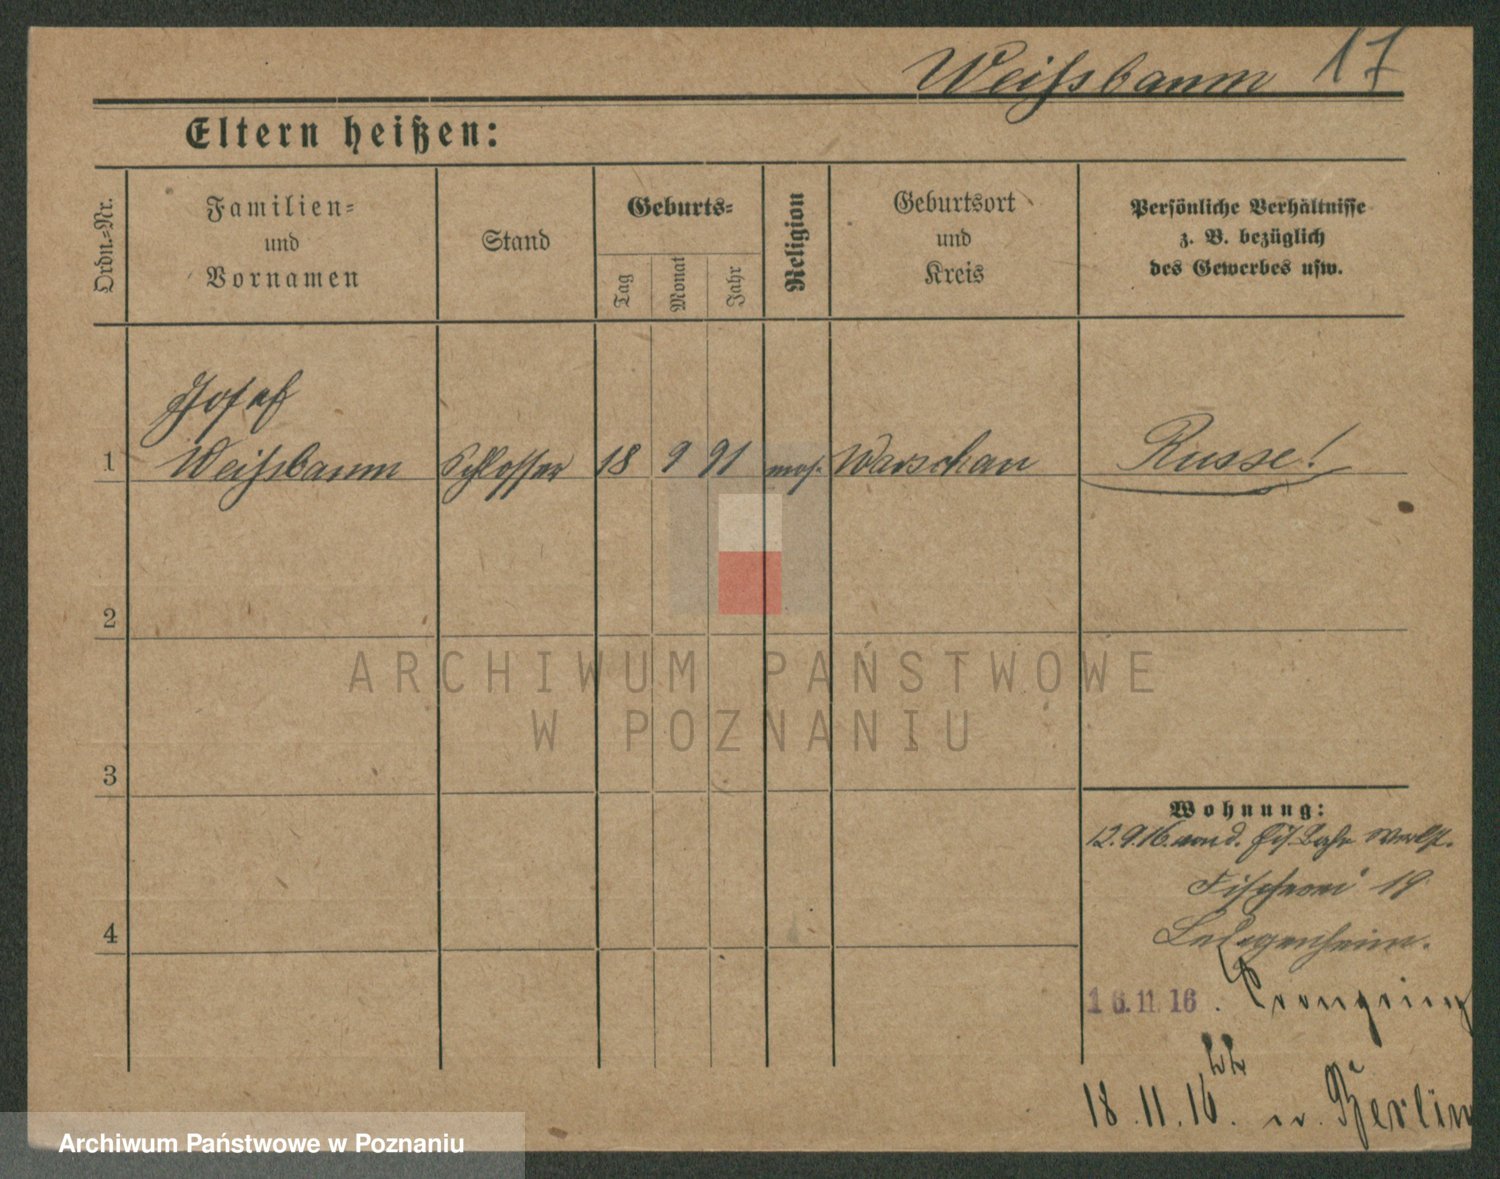 Weißbaum 17
Eltern heißen:
Ordn.-Nr.
Familien-
und
Vornamen
Stand
Geburts-
Tag
Monat
Jahr
Religion
Geburtsort
und
Kreis
Persönliche Verhältnisse
z. B. bezüglich
des Gewerbes usw.
Josef
1 Weißbaum Schlosser 18 9 91 mos. Warschau Russe!
2
3
4
Wohnung:
12.9.16.
Fischerei 19
16.11.16.
18.11.16. n. Berlin
ARCHIWUM PAŃSTWOWE
W POZNANIU
Archiwum Państwowe w Poznaniu